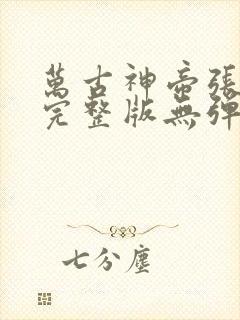 萬古神帝張
完整版無彈
七分塵